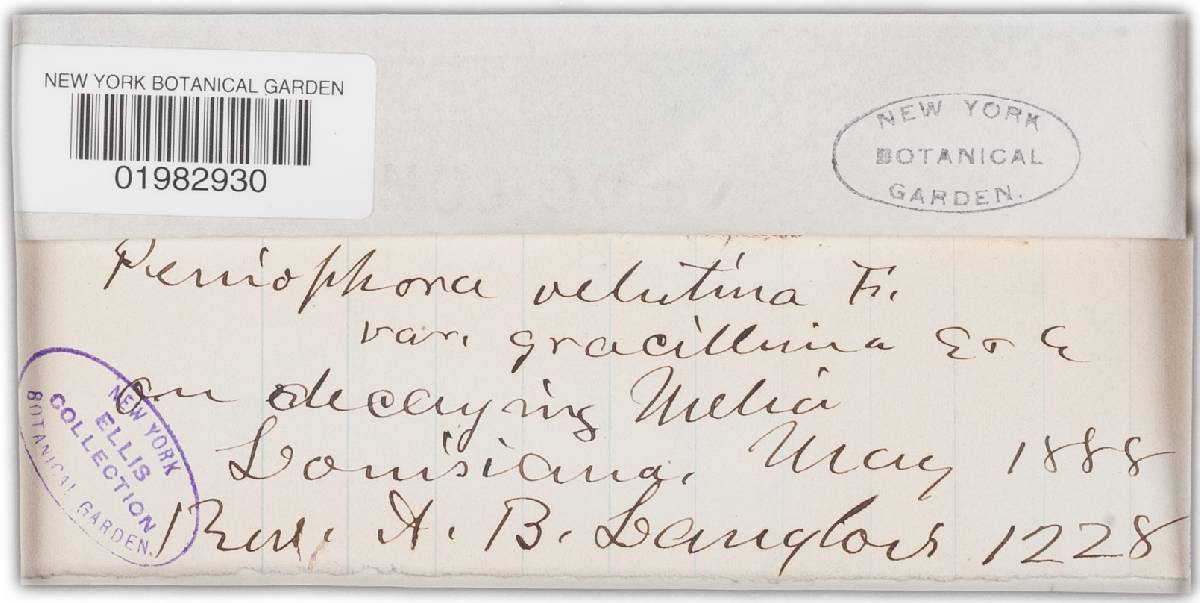 NEW YORK BOTANICAL GARDEN
01982930
NEW YORK
BOTANICAL
GARDEN.
Peniophora velutina Fr.
var. gracillima E & E
on decaying Melia
Louisiana. May 1888
Rev. A. B. Langlois 1228
NEW YORK
ELLIS
COLLECTION
BOTANICAL GARDEN.